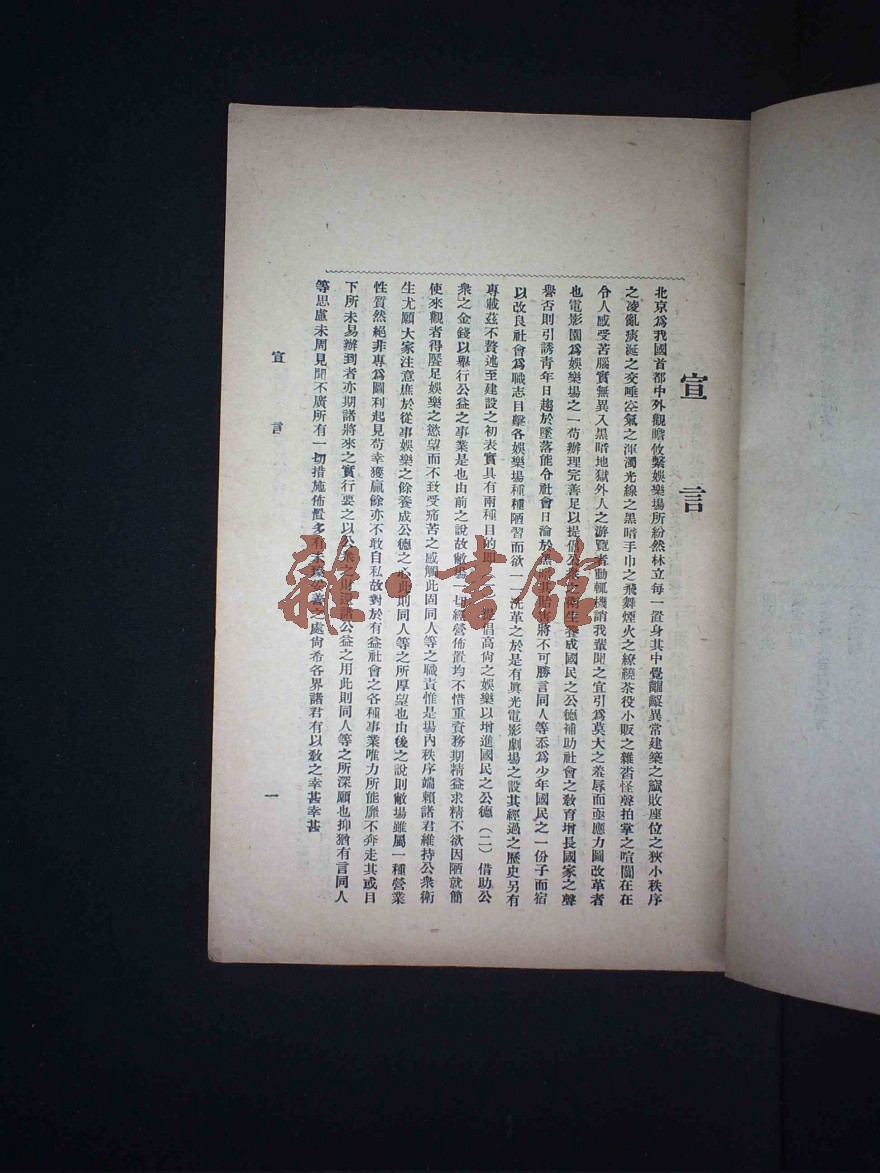 宣言
北京爲我國首都中外觀瞻攸繫娛樂場所紛然林立每一置身其中覺齷齪異常建築之窳敗座位之狹小秩序
之凌亂痰涎之交唾空氣之渾濁光線之黑暗手巾之飛舞煙火之繚繞茶役小販之雜沓怪聲拍掌之喧闐在在
令人感受苦腦實無異入黑暗地獄外人之游覽者動輒機誚我輩聞之宜引爲莫大之羞辱而亟應力圖改革者
也電影園爲娛樂場之一苟辦理完善足以提倡公衆之衛生養成國民之公德補助社會之敎育增長國家之聲
譽否則引誘青年日趨於墜落能令社會日淪於黑暗其貽害將不可勝言同人等忝爲少年國民之一份子而宿
以改良社會爲職志目擊各娛樂場種種陋習而欲一一洗革之於是有眞光電影劇場之設其經過之歷史另有
專載茲不贅述至建設之初衷實具有兩種目的即提倡高尙之娛樂以增進國民之公德(二)借助公
衆之金錢以舉行公益之事業是也由前之說故敝場一切經營佈置均不惜重資務期精益求精不欲因陋就簡
使來觀者得饜足娛樂之慾望而不致受痛苦之感觸此固同人等之職責惟是場內秩序端賴諸君維持公衆衛
生尤願大家注意庶於從事娛樂之餘養成公德之心此則同人等之所厚望也由後之說則敝場雖屬一種營業
性質然絕非專爲圖利起見苟幸獲贏餘亦不敢自私故對於有益社會之各種事業唯力所能靡不奔走其或目
下所未易辦到者亦期諸將來之實行要之以公衆之財還諸公益之用此則同人等之所深願也抑猶有言同人
等思慮未周見聞不廣所有一切措施佈置多有未臻妥善之處尙希各界諸君有以敎之幸甚幸甚
宣言
一
雜·書館